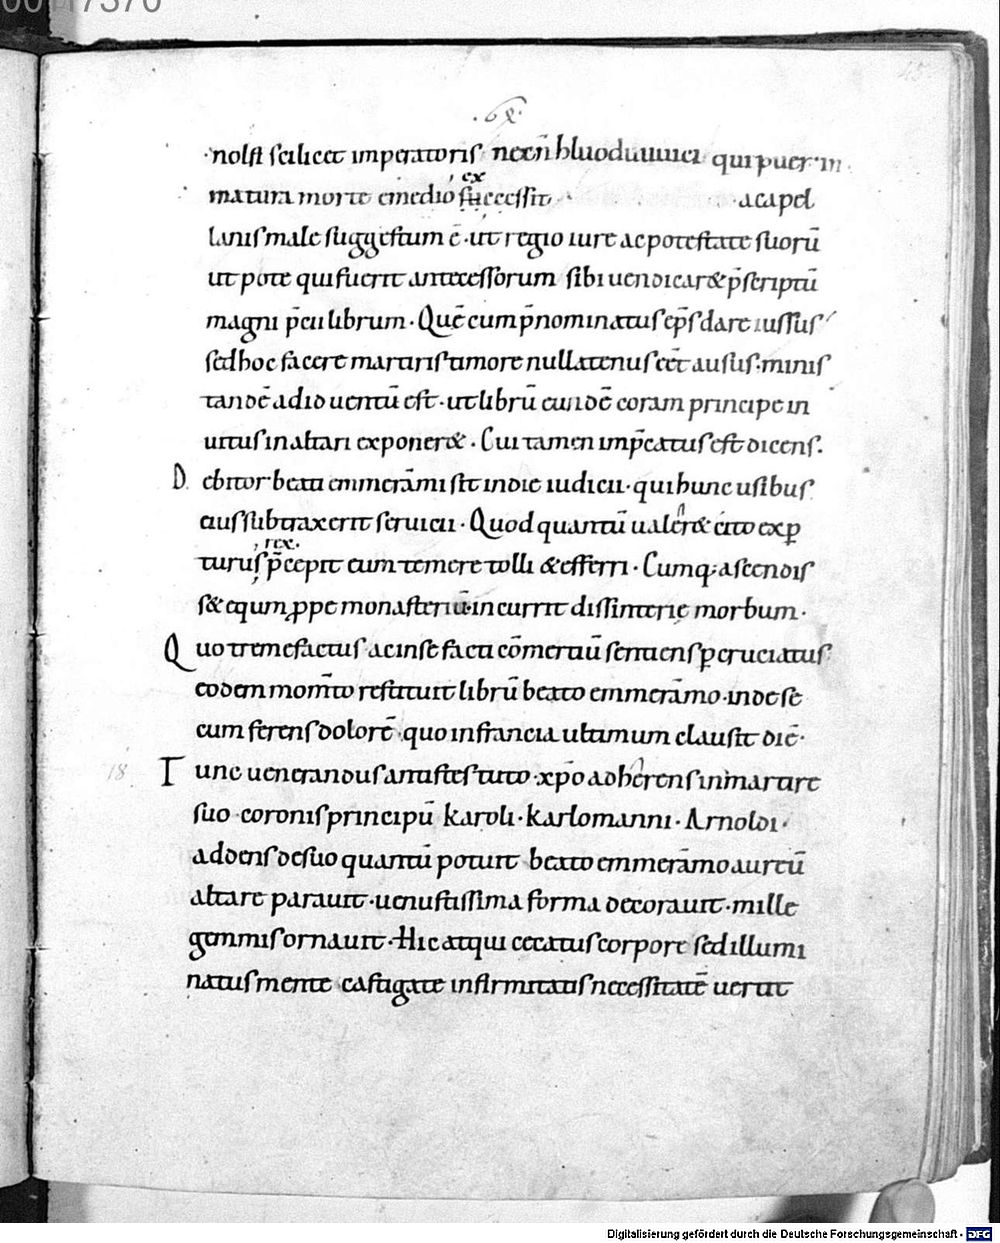 00047376
45
·6X·
·nolfi scilicet imperatoris necn̄ hluoduuuici qui puer in
matura morte emedio successit· acapel
ex
lanis male suggestum ē· ut regio iure ac potestate suorū
ut pote qui fuerit antecessorum sibi uendicar& p̄scriptū
magni p̄cii librum· Quē cum p̄nominatus ep̄s dare iussus
sed hoc facere martiris timore nullatenus eēt ausus· minis
tandē adid uentū est· ut librū eundē coram principe in
uitus in altari exponer&· Cui tamen imp̄catus est dicens·
Debitor beati emmerāmi sit in die iudicii· qui hunc usibus
eius subtraxerit seruicii· Quod quantū ualer& cito exp
turus p̄cepit eum temere tolli & efferri· Cumq; ascendis
, rex·
s& equm ꝓpe monasteriū· incurrit dissinterię morbum·
Quo tremefactus ac in se facti cōmertiū sentiens ꝑcruciatus
eodem mom̄to restituit librū beato emmerāmo· inde se
cum ferens dolorē quo in francia ultimum clausit diē·
18 Tunc uenerandus antistes tuto xp̄o adherens in martire
suo coronis principū karoli· karlomanni· Arnoldi·
addens de suo quantū potuit beato emmerāmo aureū
altare parauit· uenustissima forma decorauit· mille
gemmis ornauit· Hic atqui cecatus corpore sed illumi
natus mente castigate infirmitatis necessitatē uertit
Digitalisierung gefördert durch die Deutsche Forschungsgemeinschaft · DFG